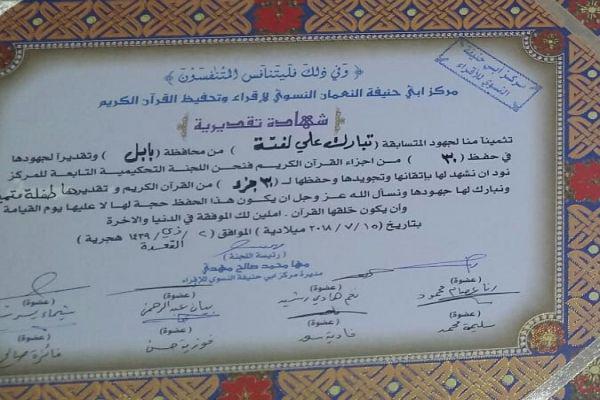 ﴿ وَفِي ذَلِكَ فَلْيَتَنَافَسِ الْمُتَنَافِسُونَ ﴾
مركز ابي حنيفة
النسوي للأقراء
مركز ابي حنيفة النعمان النسوي لأقراء وتحفيظ القرآن الكريم
شهادة تقديرية
تثميناً منا لجهود المتسابقة ( تبارك علي لفتة ) من محافظة ( بابل ) وتقديراً لجهودها
في حفظ ( ٣٠ ) من اجزاء القرآن الكريم فنحن اللجنة التحكيمية التابعة للمركز
نود ان نشهد لها بإتقانها وتجويدها وحفظها لـ ( ٣٠ جزء ) من القرآن الكريم و تقديرها طفلة
ونبارك لها جهودها ونسأل الله عز وجل ان يكون هذا الحفظ حجة لها لا عليها يوم القيامة
وأن يكون خلقها القرآن . املين لك الموفقة في الدنيا والاخرة
بتاريخ ( ١٥ / ٧ / ٢٠١٨ ميلادية ) الموافق ( ٢ / ذي القعدة / ١٤٣٩ هجرية )
( رئيسة اللجنة )
مها محمد صالح مهدي
مديرة مركز ابي حنيفة النسوي للأقراء
( عضوة ) ( عضوة ) ( عضوة ) ( عضوة )
رنا عصام محمود نغم هادي رشيد بيان عبدالرحمن شيماء
( عضوة ) ( عضوة ) ( عضوة ) ( عضوة )
سليمة محمد فوزية حسن فائزة